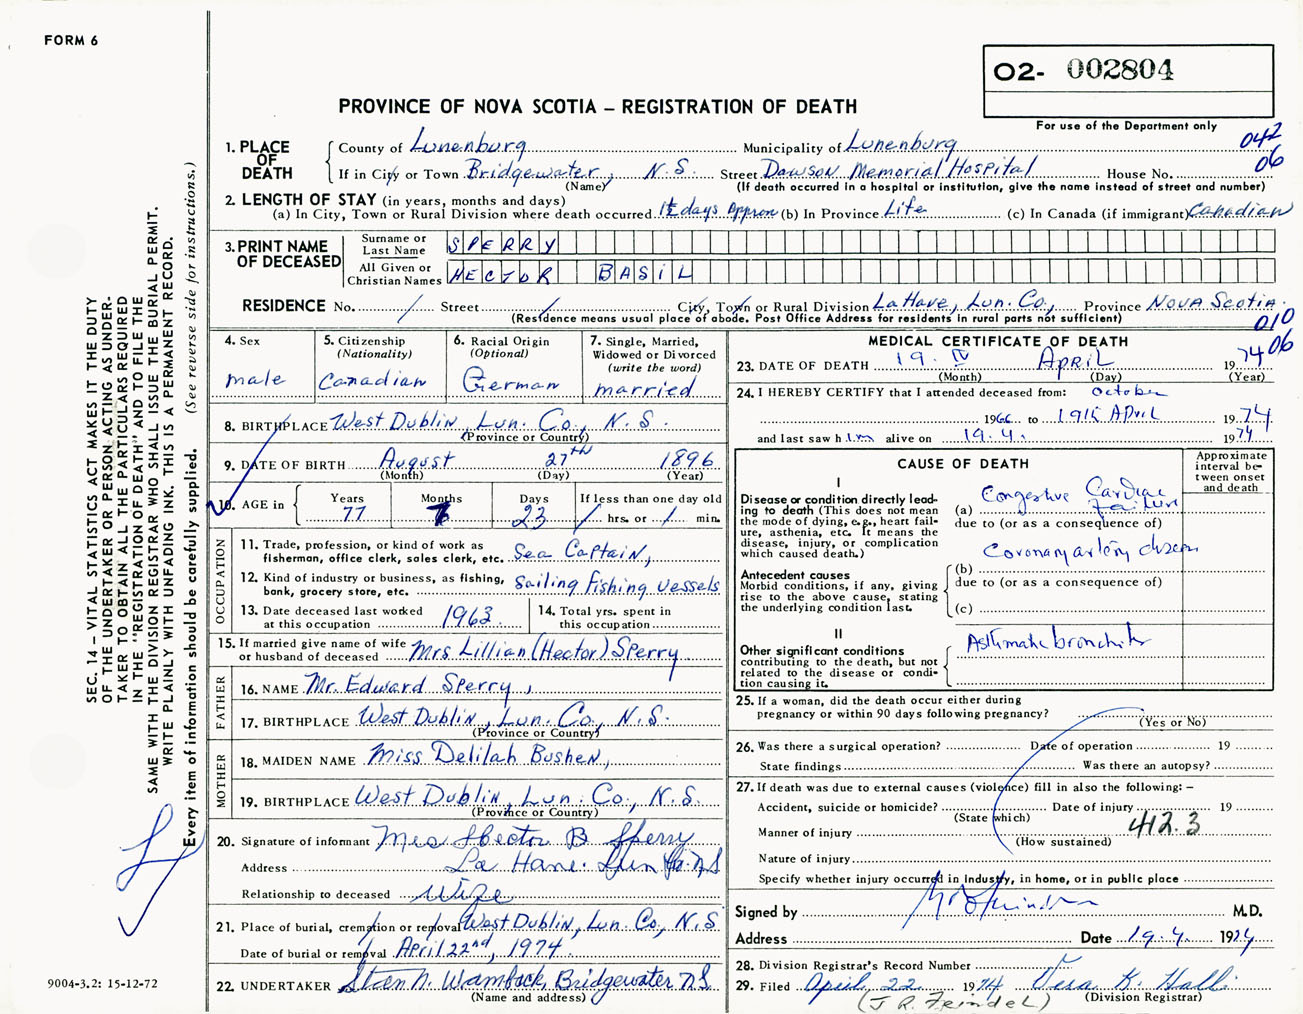 FORM 6
O2- 002804
PROVINCE OF NOVA SCOTIA – REGISTRATION OF DEATH
For use of the Department only
042
06
1. PLACE OF DEATH
County of Lunenburg Municipality of Lunenburg
If in City or Town Bridgewater, N.S. Street Dawson Memorial Hospital House No.
(Name) (If death occurred in a hospital or institution, give the name instead of street and number)
2. LENGTH OF STAY (in years, months and days)
(a) In City, Town or Rural Division where death occurred days Approx (b) In Province Life (c) In Canada (if immigrant) Canadian
3. PRINT NAME OF DECEASED
Surname or Last Name SPERRY
All Given or Christian Names HECTOR BASIL
RESIDENCE No. / Street / City, Town or Rural Division LaHave, Lun. Co., Province Nova Scotia.
(Residence means usual place of abode. Post Office Address for residents in rural parts not sufficient)
010
06
4. Sex
male
5. Citizenship
(Nationality)
Canadian
6. Racial Origin
(Optional)
German
7. Single, Married,
Widowed or Divorced
(write the word)
married
8. BIRTHPLACE West Dublin, Lun. Co., N.S.
(Province or Country)
9. DATE OF BIRTH August 27th 1896
(Month) (Day) (Year)
10. AGE in
Years Months Days If less than one day old
77 7 23 / hrs. or / min.
OCCUPATION
11. Trade, profession, or kind of work as
fisherman, office clerk, sales clerk, etc. Sea Captain,
12. Kind of industry or business, as fishing,
bank, grocery store, etc. Sailing Fishing Vessels
13. Date deceased last worked
at this occupation 1963
14. Total yrs. spent in
this occupation
15. If married give name of wife
or husband of deceased Mrs Lillian (Hector) Sperry
FATHER
16. NAME Mr. Edward Sperry,
17. BIRTHPLACE West Dublin, Lun. Co., N.S.
(Province or Country)
MOTHER
18. MAIDEN NAME Miss Delilah Bushen,
19. BIRTHPLACE West Dublin, Lun. Co., N.S.
(Province or Country)
20. Signature of informant Mrs Hector B Sperry
Address La Have. Lun Co. N S
Relationship to deceased wife
21. Place of burial, cremption or removal West Dublin, Lun. Co, N.S
Date of burial or removal April 22nd, 1974.
22. UNDERTAKER N. Wamback, Bridgewater N.S.
(Name and address)
MEDICAL CERTIFICATE OF DEATH
23. DATE OF DEATH 19. IV April 1974
(Month) (Day) (Year)
24. I HEREBY CERTIFY that I attended deceased from: October
1966 to April 1974
and last saw him alive on 19.4. 1974
CAUSE OF DEATH
Approximate
interval be-
tween onset
and death
I
Disease or condition directly lead-
ing to death (This does not mean
the mode of dying, e.g., heart fail-
ure, asthenia, etc. It means the
disease, injury, or complication
which caused death.)
(a) Congestive Cardiac Failure
due to (or as a consequence of)
Coronary artery disease
Antecedent causes
Morbid conditions, if any, giving
rise to the above cause, stating
the underlying condition last.
(b)
due to (or as a consequence of)
(c)
II
Other significant conditions
contributing to the death, but not
related to the disease or condi-
tion causing it.
Asthmatic bronchitis
25. If a woman, did the death occur either during
pregnancy or within 90 days following pregnancy?
(Yes or No)
26. Was there a surgical operation? Date of operation 19
State findings Was there an autopsy?
27. If death was due to external causes (violence) fill in also the following: –
Accident, suicide or homicide? Date of injury 19
(State which)
412.3
Manner of injury
(How sustained)
Nature of injury
Specify whether injury occurred in Industry, in home, or in public place
Signed by M.D.
Address Date 19.4. 1974
28. Division Registrar's Record Number
29. Filed April 22 1974 Vera K. Halli
(J R. Feindel) (Division Registrar)
SEC. 14 – VITAL STATISTICS ACT MAKES IT THE DUTY
OF THE UNDERTAKER OR PERSON ACTING AS UNDER-
TAKER TO OBTAIN ALL THE PARTICULARS REQUIRED
IN THE "REGISTRATION OF DEATH" AND TO FILE THE
SAME WITH THE DIVISION REGISTRAR WHO SHALL ISSUE THE BURIAL PERMIT.
WRITE PLAINLY WITH UNFADING INK. THIS IS A PERMANENT RECORD.
Every item of information should be carefully supplied. (See reverse side for instructions.)
9004-3.2: 15-12-72